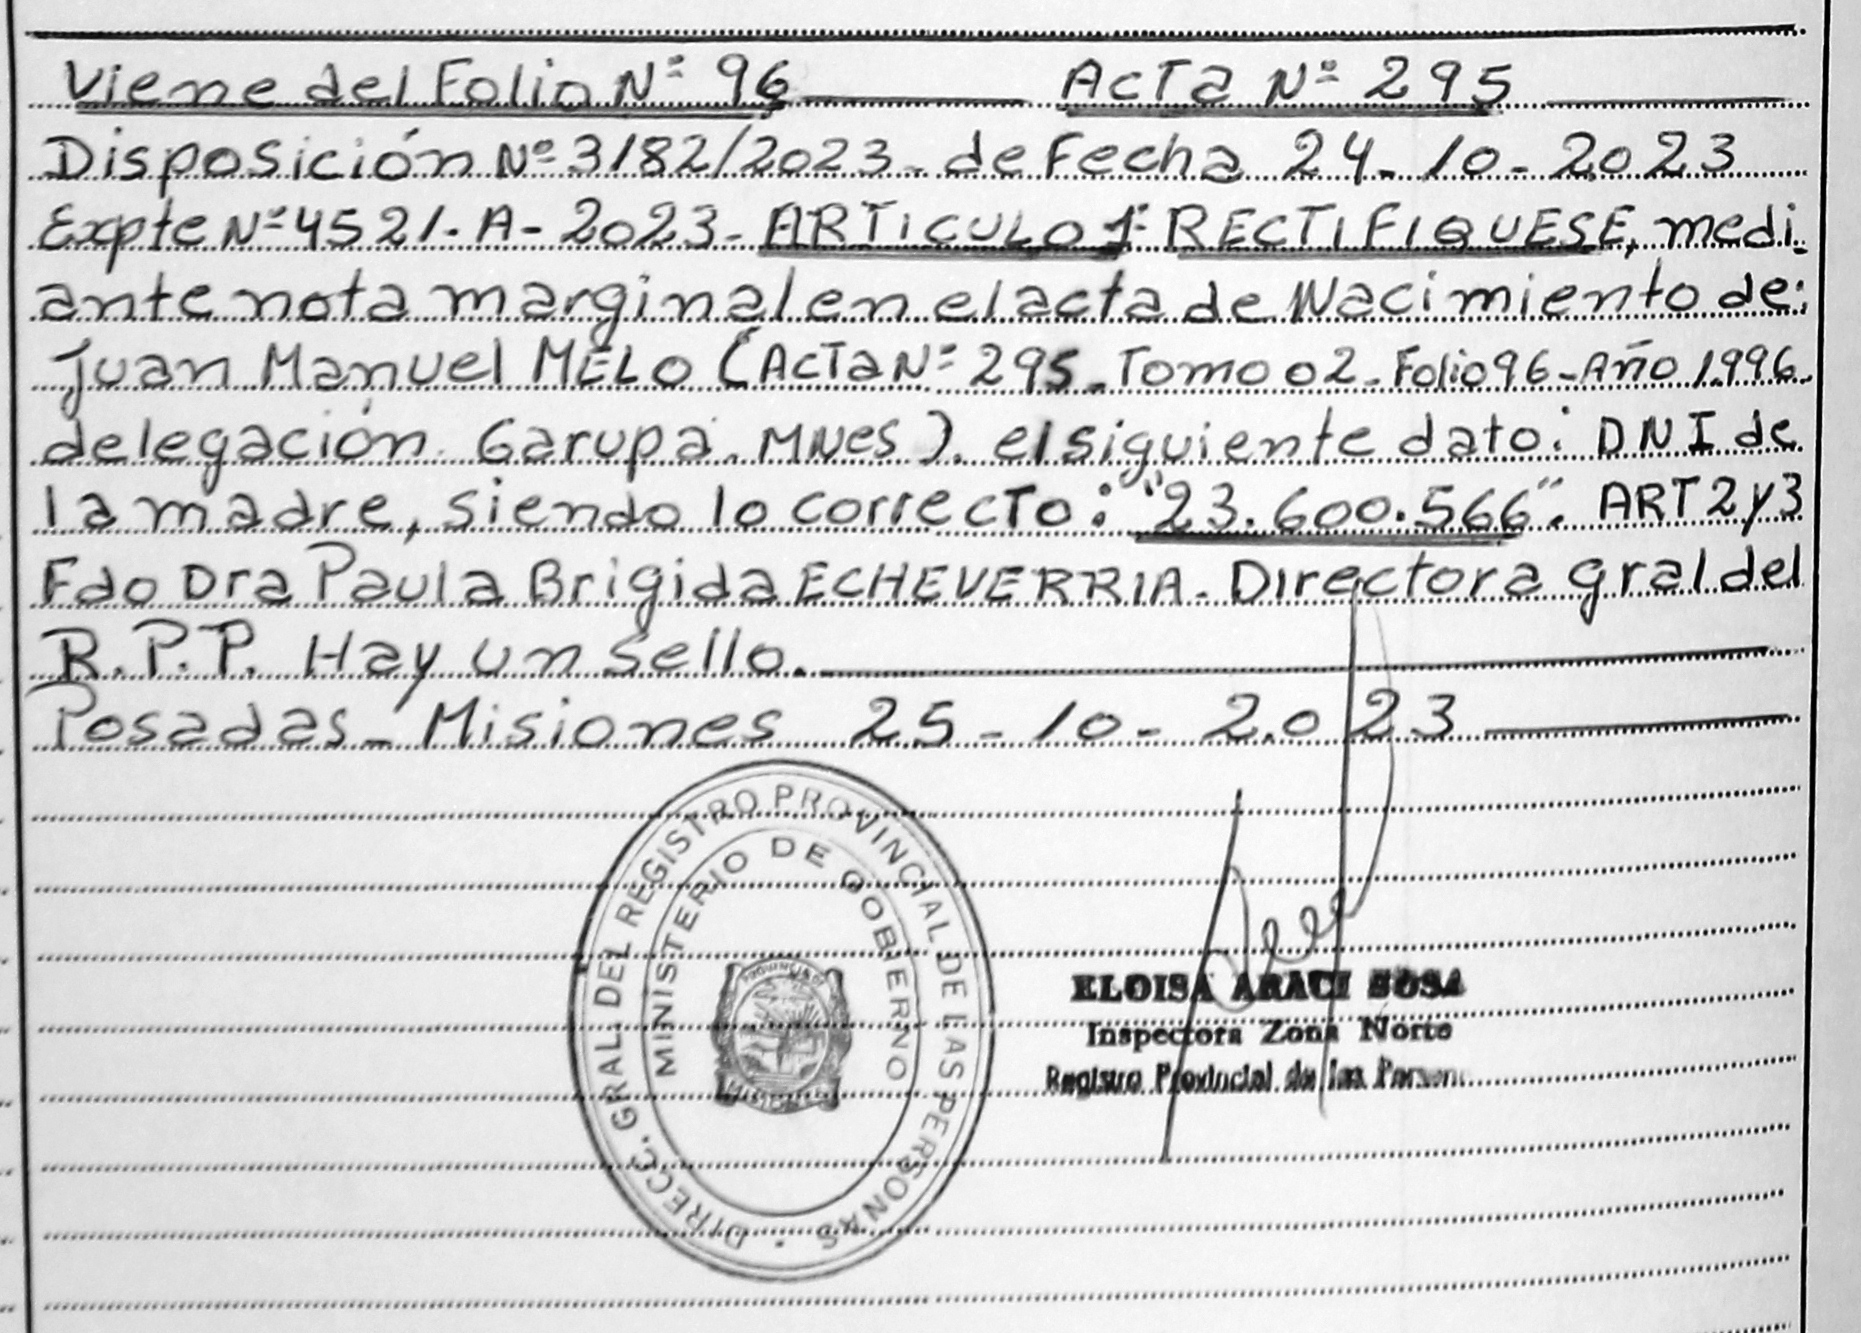 Viene del Folio Nº 96 Acta Nº 295
Disposición Nº 3182/2023 - de Fecha 24-10-2023
Expte Nº 4521-A-2023- ARTICULO 1º RECTIFIQUESE, medi-
ante nota marginal en el acta de Nacimiento de:
Juan Manuel MELO (Acta Nº 295 - Tomo 02 - Folio 96 - Año 1996
delegación Garupá. MNES). el siguiente dato: DNI de
la madre, siendo lo correcto: "23.600.566". ART 2 y 3
Fdo Dra Paula Brigida ECHEVERRIA - Directora gral del
R.P.P. Hay un sello.
Posadas - Misiones 25-10-2023
DIRECC. GRAL. DEL REGISTRO PROVINCIAL DE LAS PERSONAS
MINISTERIO DE GOBIERNO
PROVINCIA DE
MISIONES
ELOISA ARACI SOSA
Inspectora Zona Norte
Registro Provincial de las Person